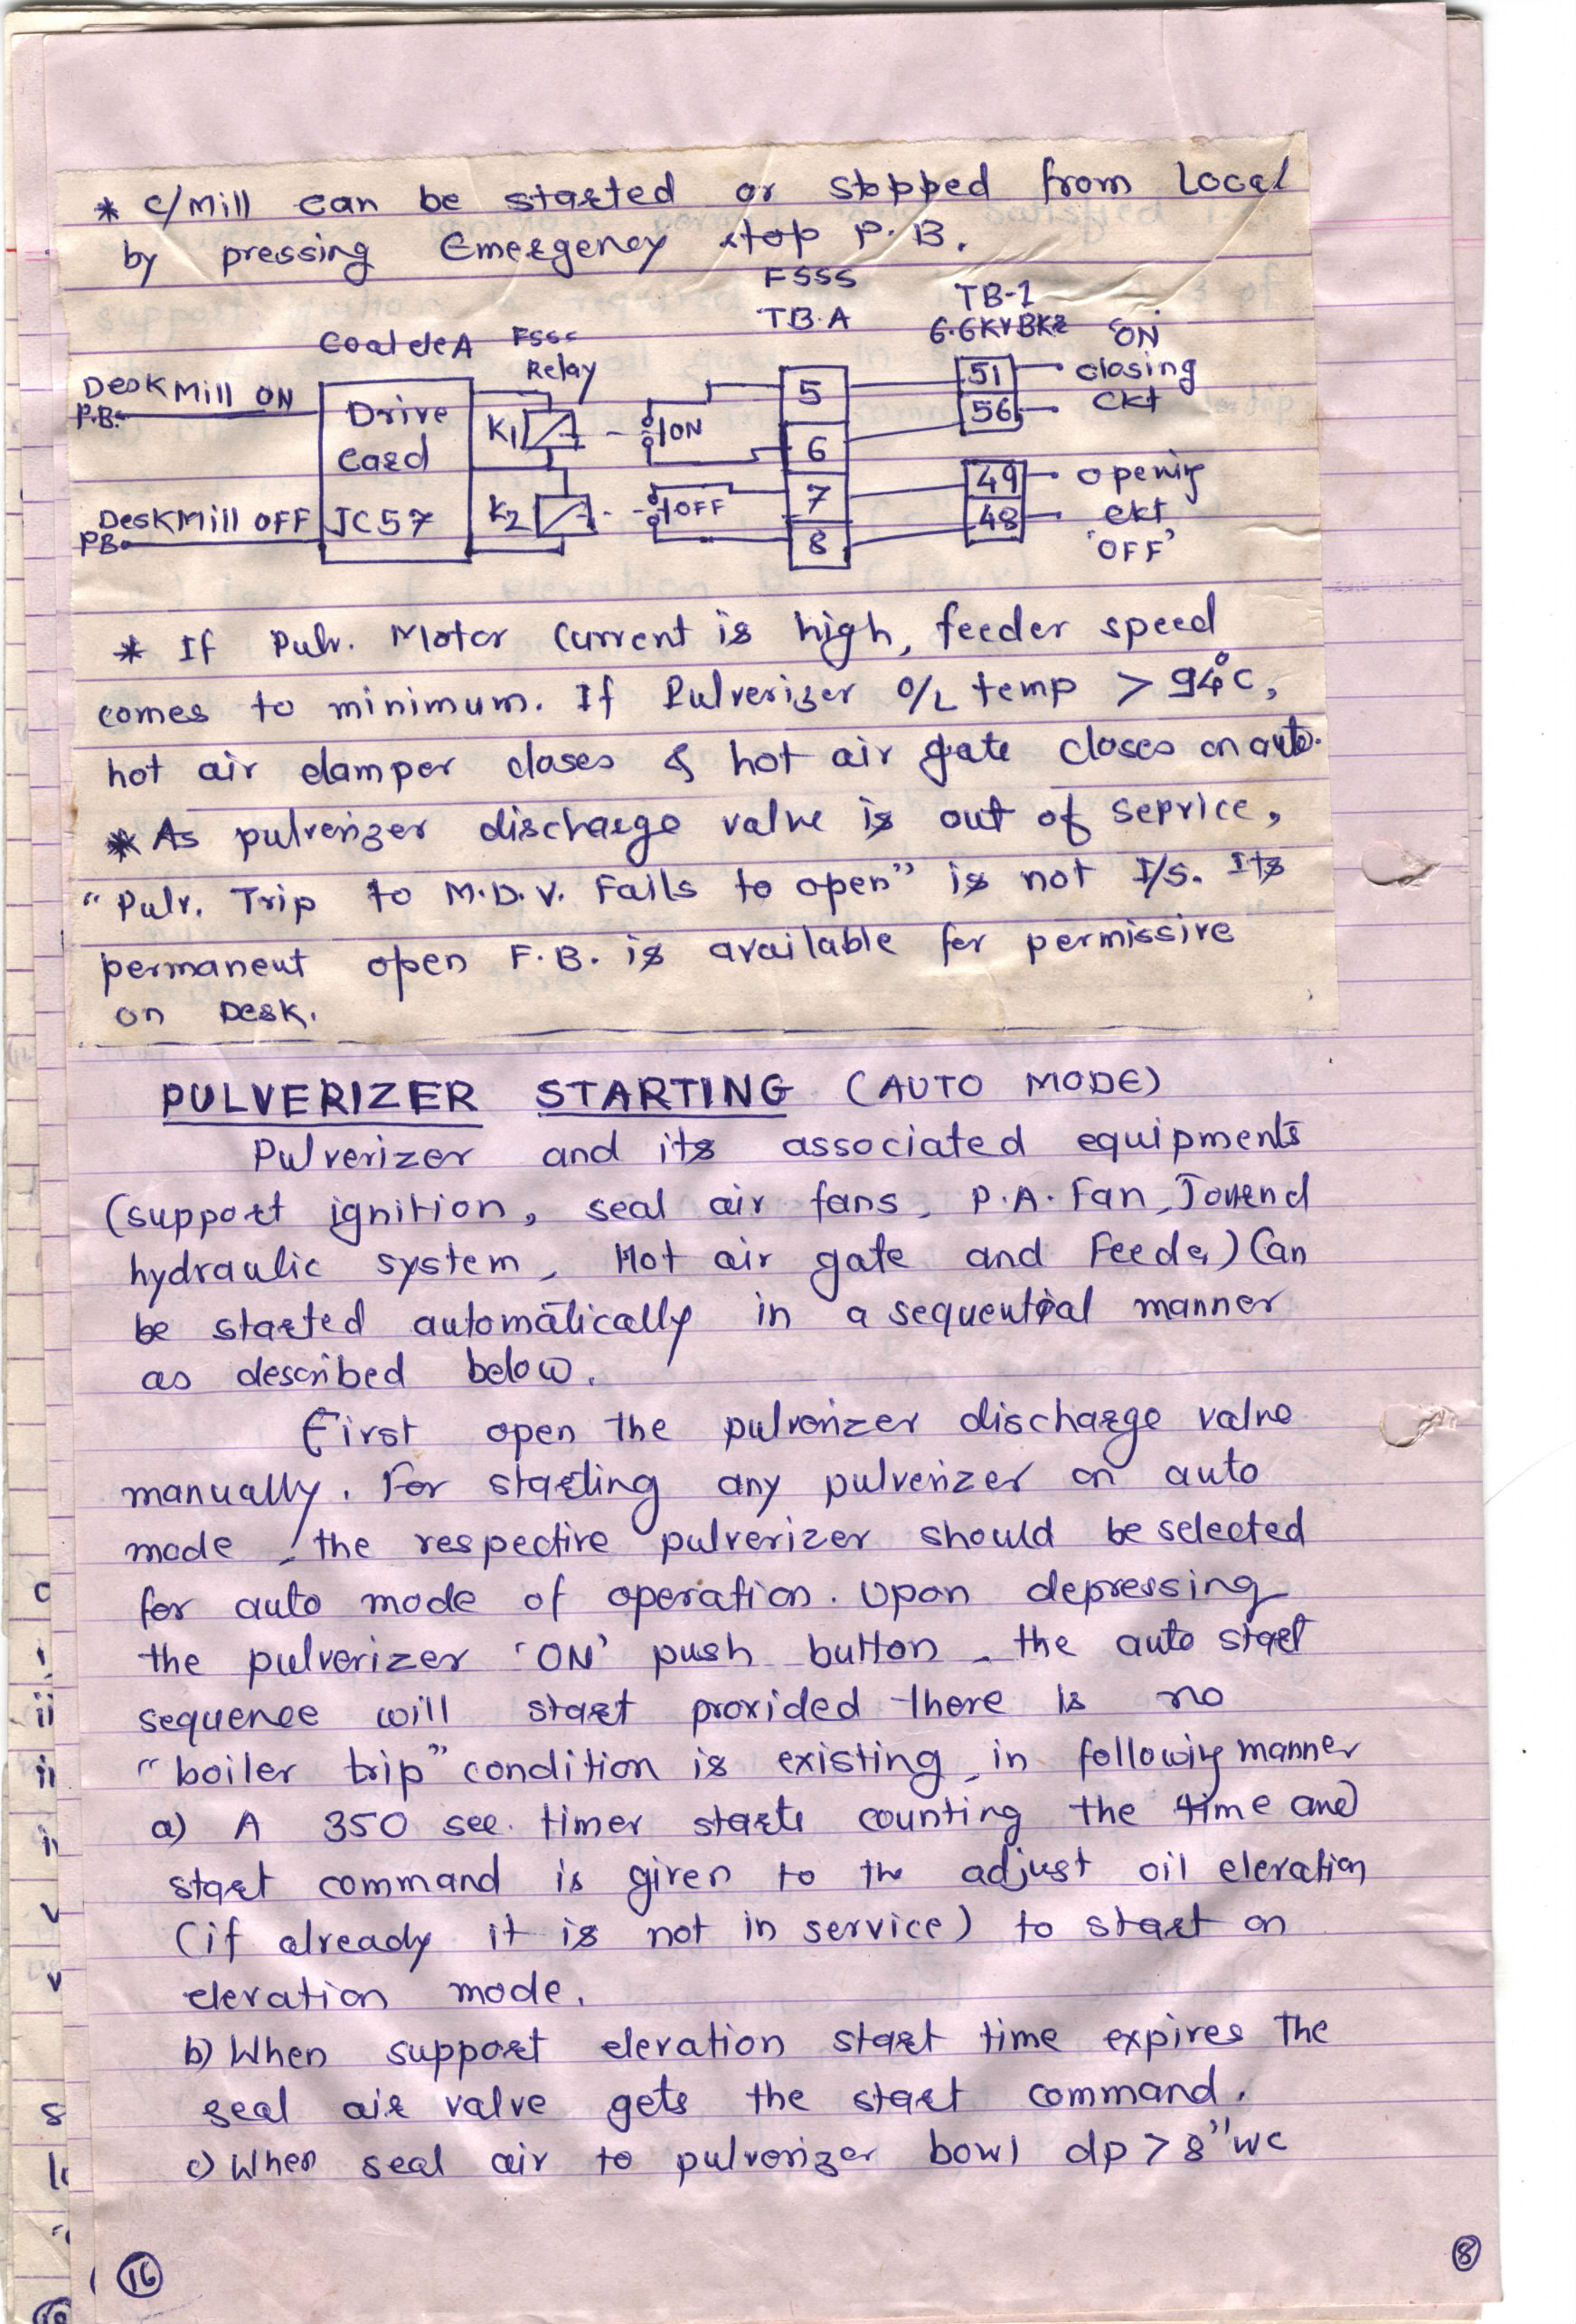 * C/Mill can be started or stopped from Local
by pressing Emergency stop P.B.
FSSS
TB.A
TB-1
6.6KV BKR
"ON"
Coal ele A
FSSS
Relay
Desk Mill ON
P.B.
Drive
Card
JC57
K1
ON
5
6
51
56
closing
ckt
Desk Mill OFF
PB
K2
OFF
7
8
49
48
opening
ckt
'OFF'
* If Pulv. Motor Current is high, feeder speed
comes to minimum. If Pulverizer O/L temp > 94°C,
hot air damper closes & hot air gate closes on auto.
* As pulverizer discharge valve is out of service,
"Pulv. Trip to M.D.V. Fails to open" is not I/S. Its
permanent open F.B. is available for permissive
on Desk.
PULVERIZER STARTING (AUTO MODE)
Pulverizer and its associated equipments
(support ignition, seal air fans, P.A. Fan, Journal
hydraulic system, Hot air gate and Feeder) Can
be started automatically in a sequential manner
as described below.
First open the pulverizer discharge valve
manually. For starting any pulverizer on auto
mode, the respective pulverizer should be selected
for auto mode of operation. Upon depressing
the pulverizer 'ON' push button, the auto start
sequence will start provided there is no
"boiler trip" condition is existing, in following manner
a) A 350 sec. timer starts counting the time and
start command is given to the adjust oil elevation
(if already it is not in service) to start on
elevation mode.
b) When support elevation start time expires the
seal air valve gets the start command.
c) When seal air to pulverizer bowl dp > 8"WC
16
8